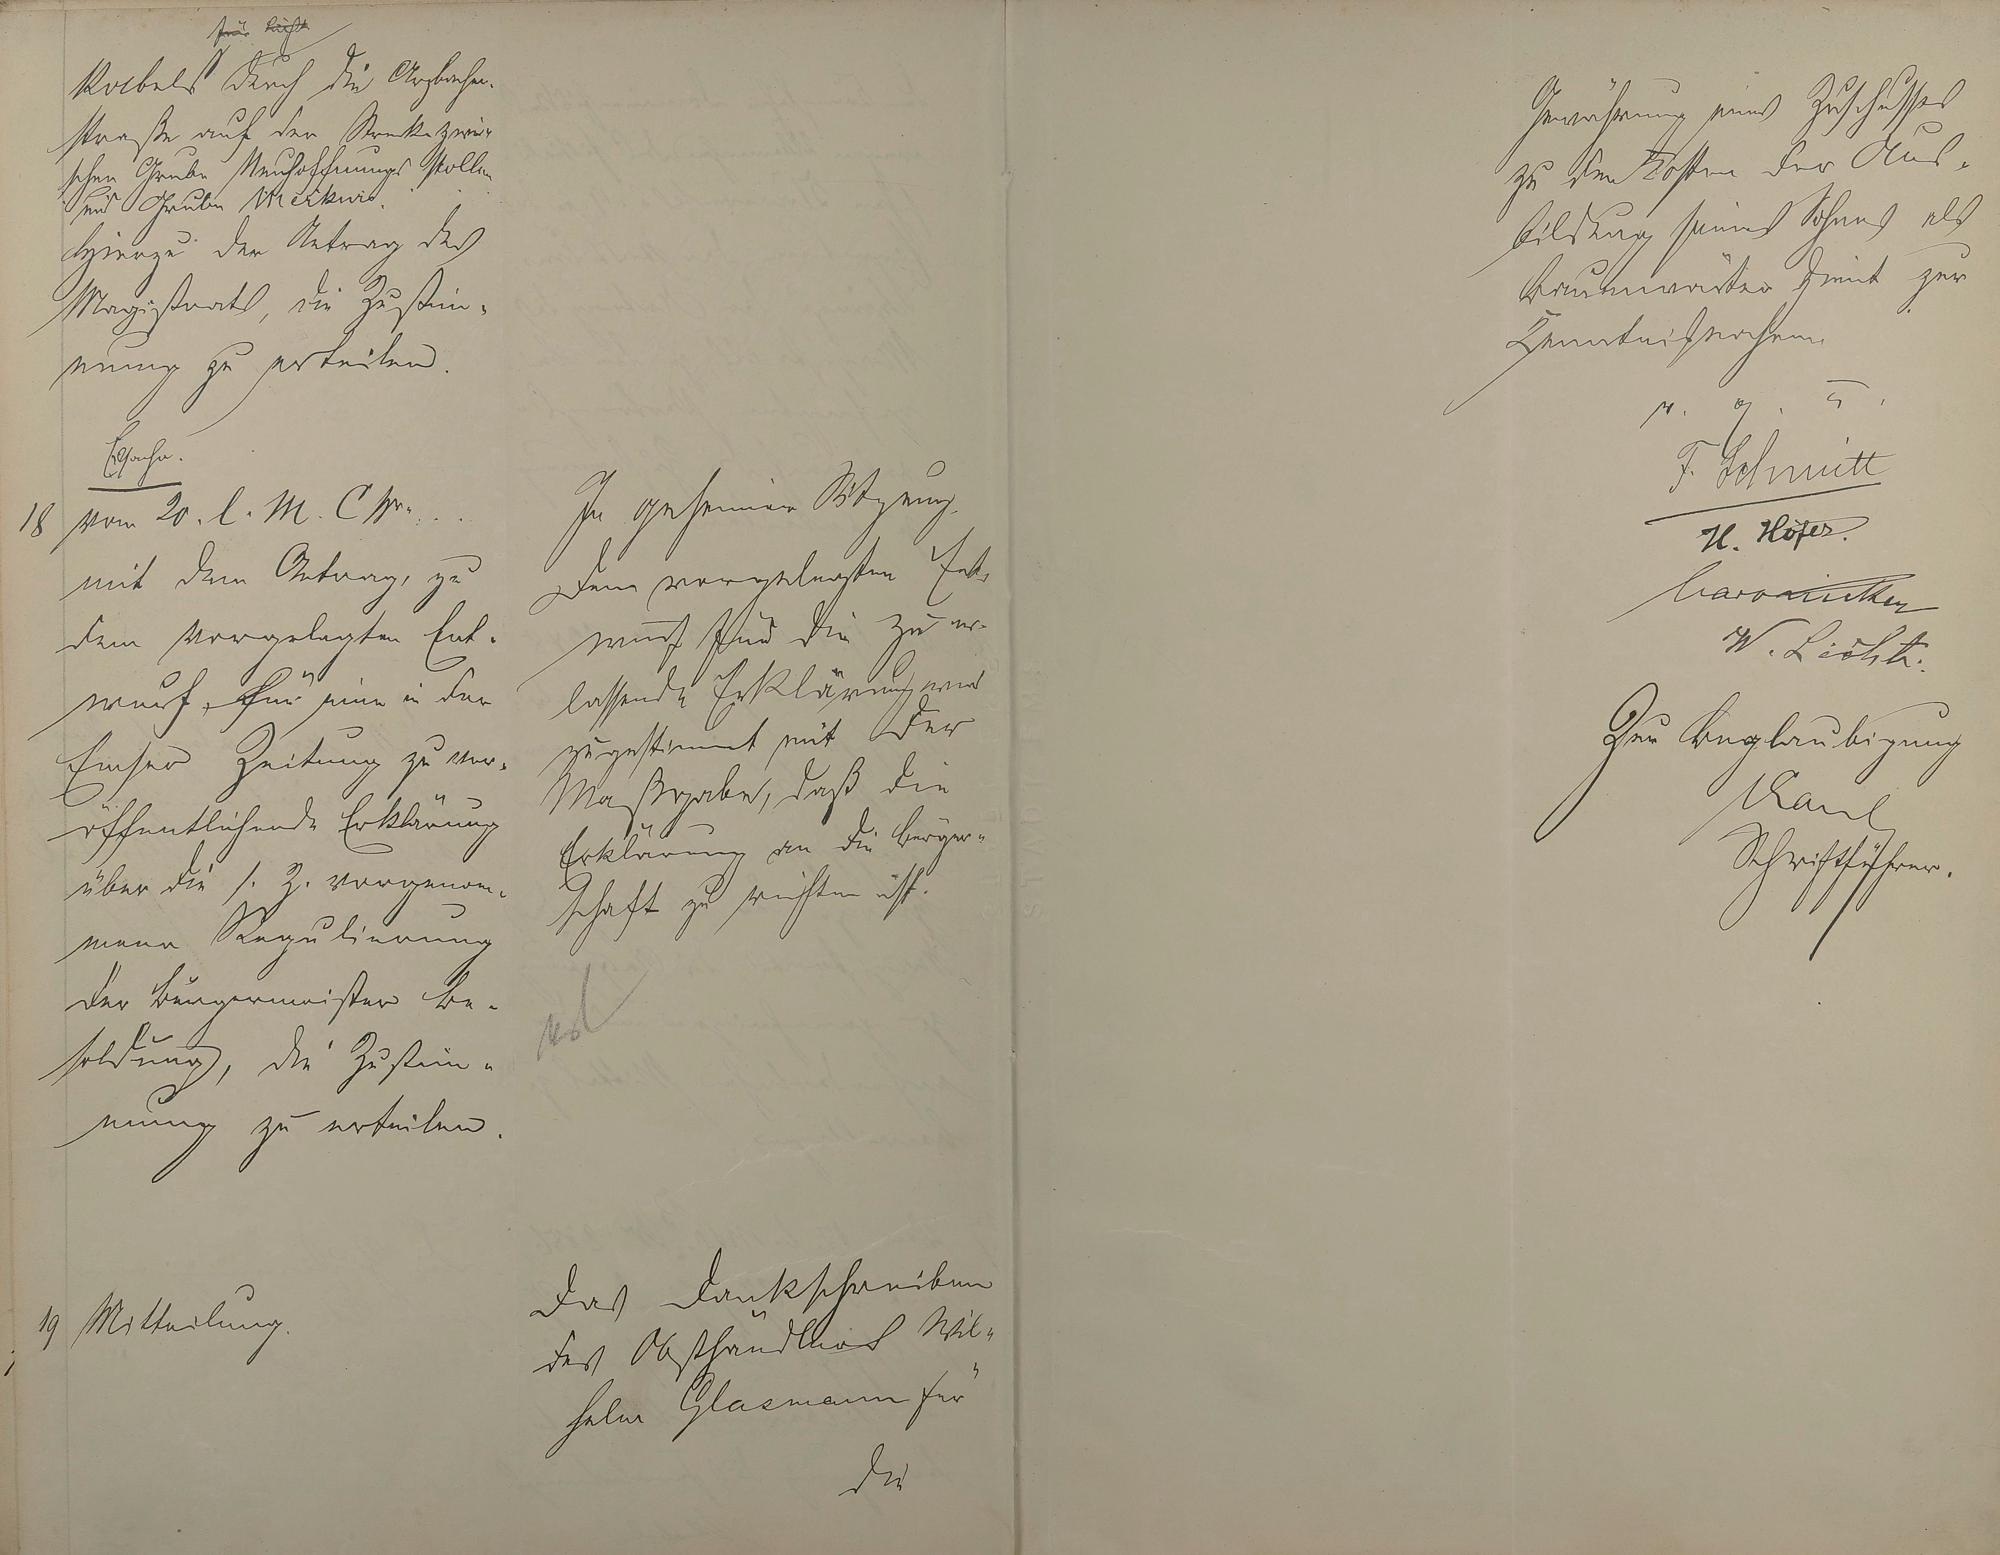 Kabels durch die Arzbacher-
straße auf der Strecke zwi-
schen Grube Neuhoffnungsstollen
und Grube Merkur.
Hierzu der Antrag des
Magistrats, die Zustim-
mung zu erteilen.
18 vom 20. l. M.
mit dem Antrag, zu
dem vorgelegten Ent-
wurf, für eine in der
Emser Zeitung zu ver-
öffentlichende Erklärung
über die s. Z. vorgenom-
mene Regulierung
der Bürgermeister Be-
soldung, die Zustim-
mung zu erteilen.
In geheimer Sitzung.
Dem vorgelegten Ent-
wurf für die zu er-
lassende Erklärung wird
zugestimmt mit der
Maßgabe, daß die
Erklärung an die Bürger-
schaft zu richten ist.
19 Mitteilung.
Das Dankschreiben
des Obsthändlers Wil-
helm Glasmann für
die
Gewährung eines Zuschusses
zu den Kosten der Aus-
bildung seines Sohnes als
Brunnenwärter dient zur
Kenntnisnahme.
v. g. u.
F. Schmitt
H. Höfer.
W. Licht
Zur Beglaubigung
Kaul
Schriftführer.